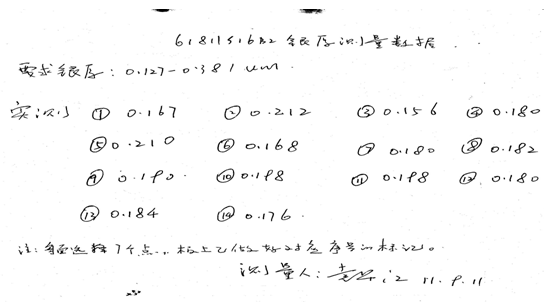 61811516B2 银厚测量数据
要求银厚: 0.127-0.381 um
实测 ① 0.167 ② 0.212 ③ 0.156 ④ 0.180
⑤ 0.210 ⑥ 0.168 ⑦ 0.180 ⑧ 0.182
⑨ 0.190 ⑩ 0.198 ⑪ 0.198 ⑫ 0.180
⑬ 0.184 ⑭ 0.176
注: 每面选择7个点, 板上已做好对应序号的标记。
测量人: 11.9.11